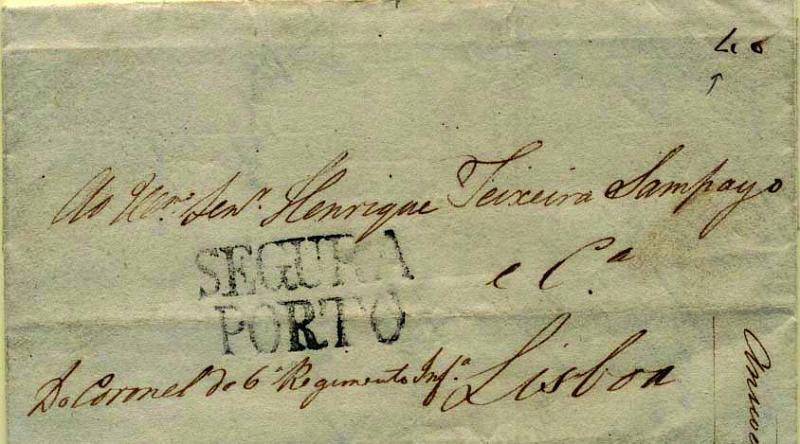 Ao Illmo. Senr. Henrique Teixeira Sampayo
e C.a
SEGURA
PORTO
Do Coronel do 6º Regimento Inf.a
Lisboa